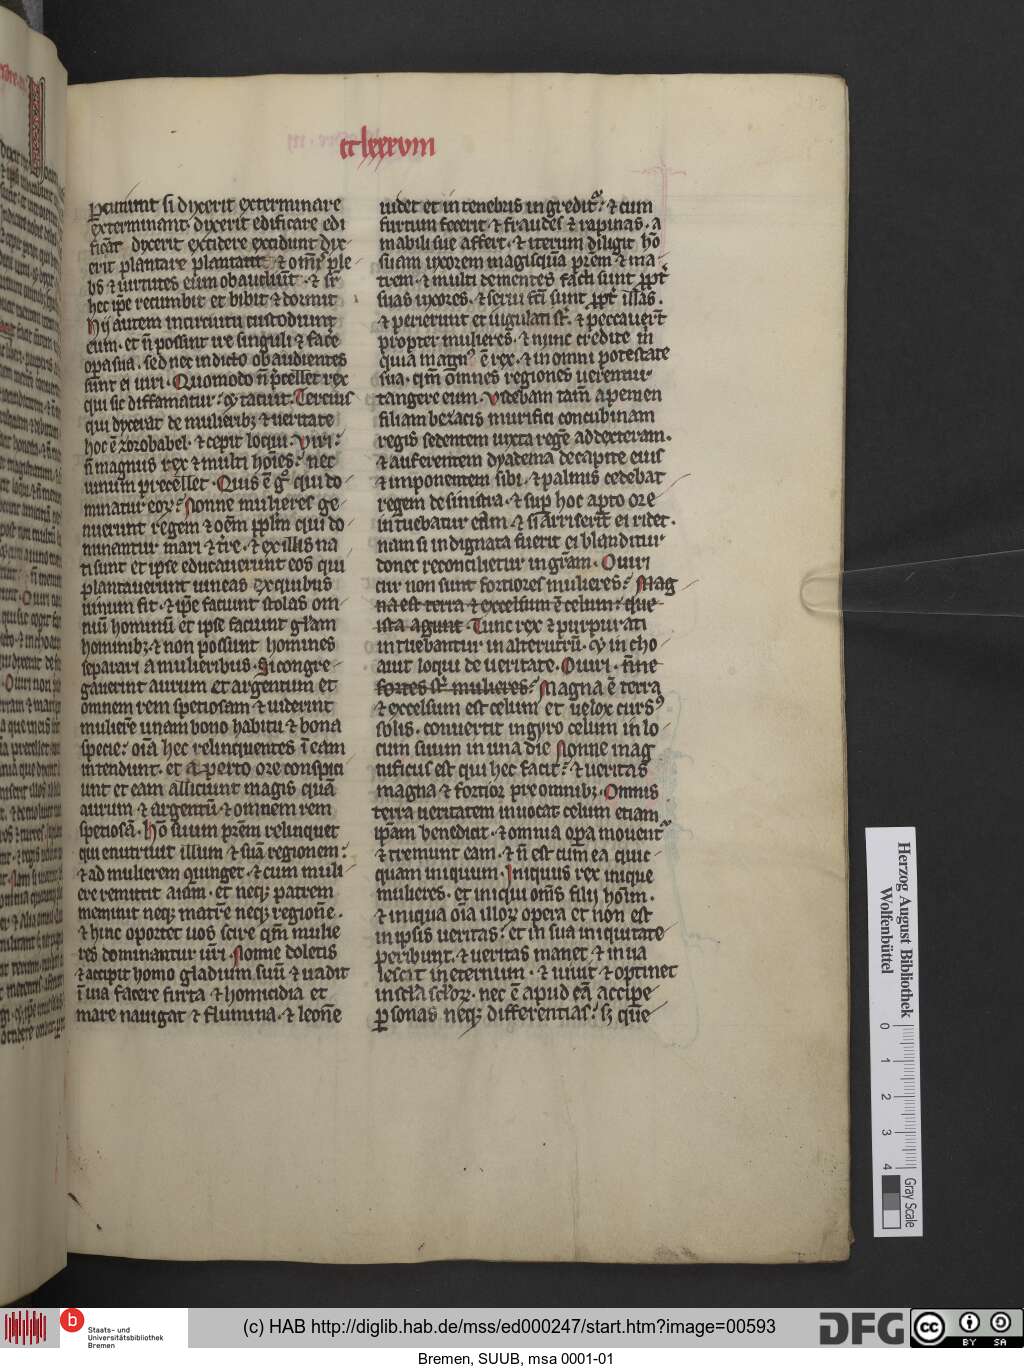 cclxxxviii
percutiunt si dixerit exterminare
exterminant. dixerit edificare edi
ficant dixerit excidere excidunt dix
erit plantare plantant. ⁊ om̄is ple
bs ⁊ uirtutes eum obaudiunt. ⁊ sr̄
hec ip̄e recumbit et bibit ⁊ dormit
Hij autem in circuitu custodiunt
eum. et n̄ possunt ire singuli ⁊ facē
oꝑa sua. sed nec in dicto obaudientes
sunt ei uiri. Quomodo n̄ p̄cellet rex
qui sic diffamatur? ⁊ tacuit. Tercius
qui dixerat de mulieribꝫ ⁊ ueritate
hoc ē zorobabel. ⁊ cepit loqui. Viri?
n̄ magnus rex ⁊ multi hoīes? nec
uinum precellet. Quis ē gͦ qui do
minatur eoꝝ? Nonne mulieres ge
nuerunt regem ⁊ oēm ꝑplm̄ qui do
minantur mari ⁊ tr̄e. ⁊ ex illis na
ti sunt et ipse educauerunt eos qui
plantauerunt uineas ex quibus
uinum fit. ⁊ ip̄e faciunt stolas om
niū hominū et ipse faciunt glām
hominibꝫ ⁊ non possunt homines
separari a mulieribus. Si congre
gauerint aurum et argentum et
omnem rem speciosam ⁊ uiderint
mulierē unam bono habitu ⁊ bona
specie? oīa hec relinquentes ī eam
intendunt. et aperto ore conspici
unt et eam alliciunt magis quā
aurum ⁊ argentū ⁊ omnem rem
speciosā. Hō suum pr̄em relinquet
qui enutriuit illum ⁊ suā regionem?
⁊ ad mulierem ꝯiunget. ⁊ cum muli
ere remittit aīam. et neqꝫ patrem
meminit neqꝫ matrē neqꝫ regionē.
⁊ hinc oportet uos scire qm̄ mulie
res dominantur ur̄i. Nonne doletis
⁊ accipit homo gladium suū ⁊ uadit
ī uia facere furta ⁊ homicidia et
mare nauigat ⁊ flumina. ⁊ leonē
uidet et in tenebris ingreditᷣ? ⁊ cum
furtum fecerit. ⁊ fraudes ⁊ rapinas. a
mabili sue affert. ⁊ iterum diligit hō
suam uxorem magis quā pr̄em ⁊ ma
trem. ⁊ multi dementes facti sunt ꝓpt̄
suas uxores. ⁊ serui fc̄i sunt ꝓpt̄ illas.
⁊ perierunt et iugulati sr̄. ⁊ peccauer̄t
propter mulieres. ⁊ nunc credite m̄
quia magnꝰ ē rex. ⁊ in omni potestate
sua. qm̄ omnes regiones uerentur
tangere eum. Videbam tam̄ apemen
filiam bezacis murifici concubinam
regis sedentem iuxta regē ad dexteram.
⁊ auferentem dyadema de capite eius
⁊ imponentem sibi. ⁊ palmis cedebat
regem de sinistra. ⁊ suꝑ hoc aꝑto ore
intuebatur eām. ⁊ si arriserit ei ridet.
nam si indignata fuerit ei blanditur
donec reconcilietur in gr̄am. O uiri
cur non sunt fortiores mulieres? Mag
na est terra ⁊ excelsum ē celum? que
ista agunt. Tunc rex ⁊ purpurati
intuebantur in alterutrū. ⁊ incho
auit loqui de ueritate. O uiri. n̄ne
fortes sr̄ mulieres? Magna ē terra
⁊ excelsum est celum et uelox cursꝰ
solis. conuertit in gyro celum in lo
cum suum in una die Nonne mag
nificus est qui hec facit? ⁊ ueritas
magna ⁊ fortior pre omnibꝫ. Omnis
terra ueritatem inuocat celum etiam
ip̄am benedicit. ⁊ omnia oꝑa mouentᷣ
⁊ tremunt eam. ⁊ n̄ est cum ea quic
quam iniquum. Iniquus rex inique
mulieres. et iniqui om̄s filij hoīm.
⁊ iniqua oīa illoꝝ opera et non est
in ipsis ueritas? et in sua iniquitate
peribunt. ⁊ ueritas manet ⁊ inua
lescit in eternum. ⁊ uiuit ⁊ optinet
in scl̄a scl̄oꝝ. nec ē apud eā accipe
ꝑsonas neqꝫ differentias? sꝫ que
Herzog August Bibliothek
Wolfenbüttel
0 1 2 3 4
Gray Scale
b
Staats- und
Universitätsbibliothek
Bremen
(c) HAB http://diglib.hab.de/mss/ed000247/start.htm?image=00593
DFG
cc BY SA
Bremen, SUUB, msa 0001-01